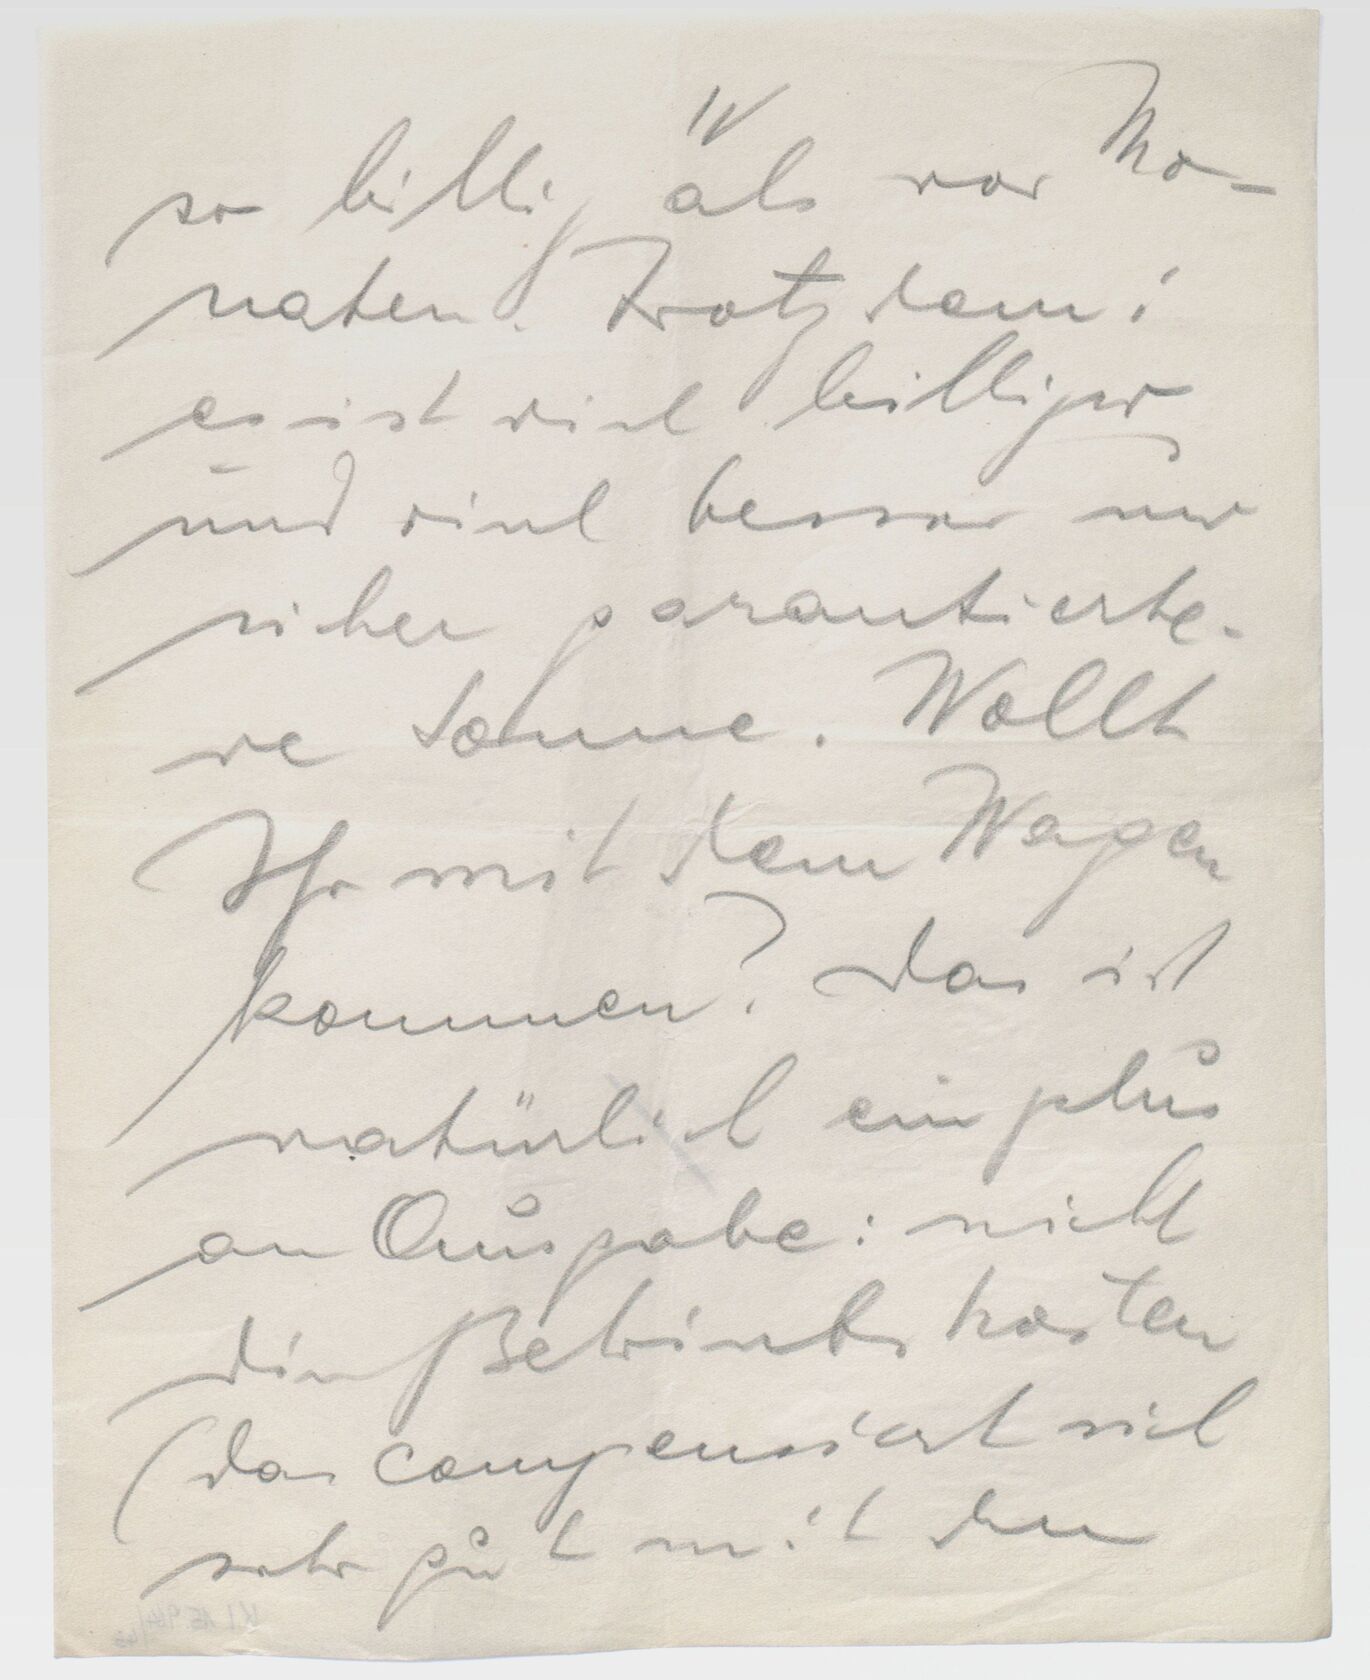 IV
so billig als vor Mo-
naten. Trotzdem:
es ist viel billiger
und viel besser nur
sicher garantierte-
re Sonne. Wollt
Ihr mit dem Wagen
kommen? Das ist
natürlich ein plus
an Ausgabe: nicht
die Betriebskosten
(das compensiert sich
sehr gut mit den